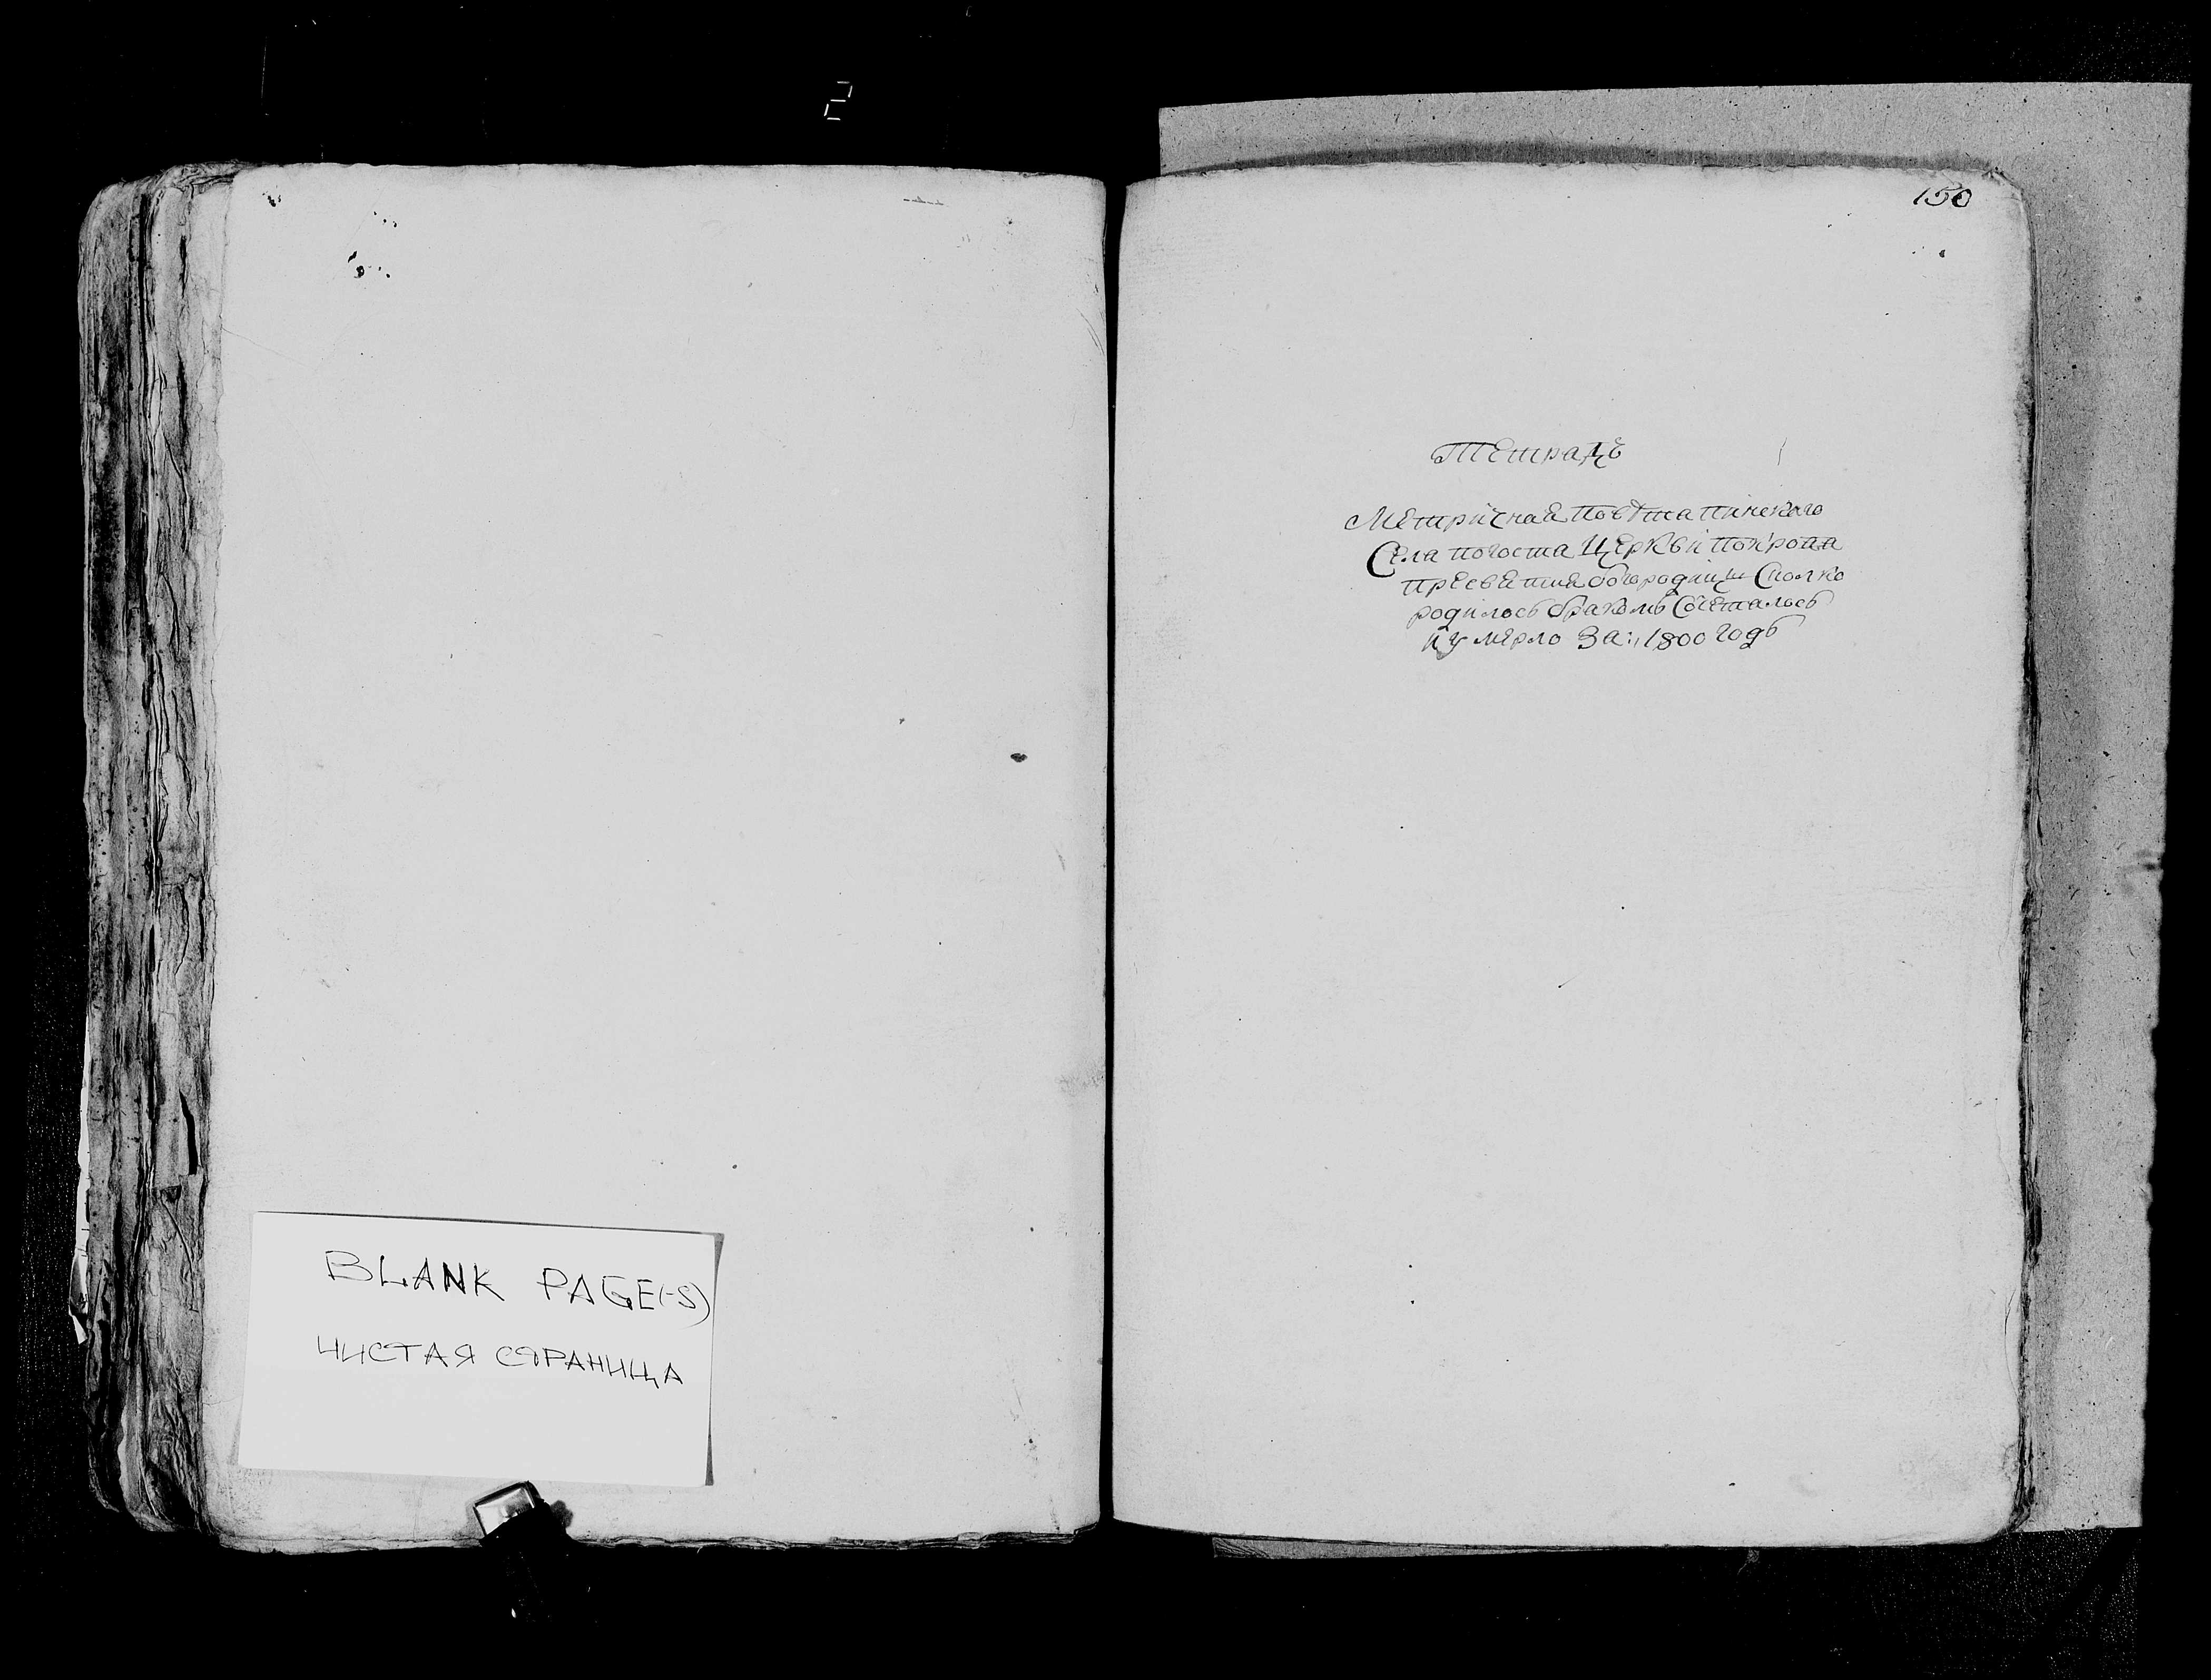 2
BLANK PAGE(-S)
ЧИСТАЯ СТРАНИЦА
150
Тетрадь
Метричная повѣта пинскаго
Села погоста Церкви покрова
пресветия богородицы Сколко
родилось браком Сочеталось
и умерло За 1800 годъ